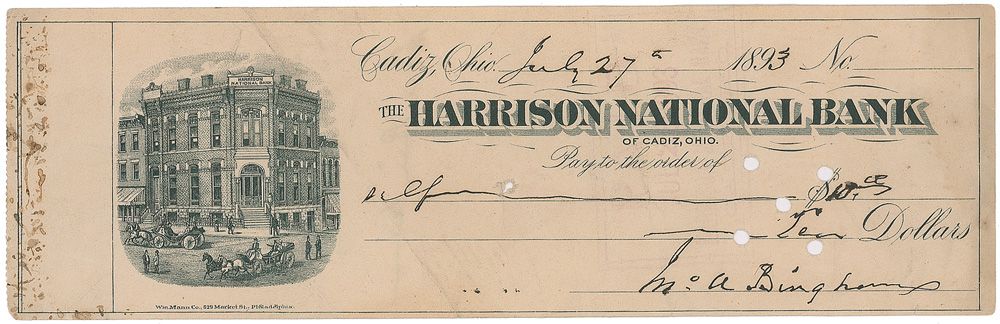 HARRISON
NATIONAL BANK
Cadiz, Ohio, July 27th 1893 No.
THE HARRISON NATIONAL BANK
OF CADIZ, OHIO.
Pay to the order of
self $10.00
Ten Dollars
Jno A Bingham
Wm. Mann Co., 529 Market St., Philadelphia.